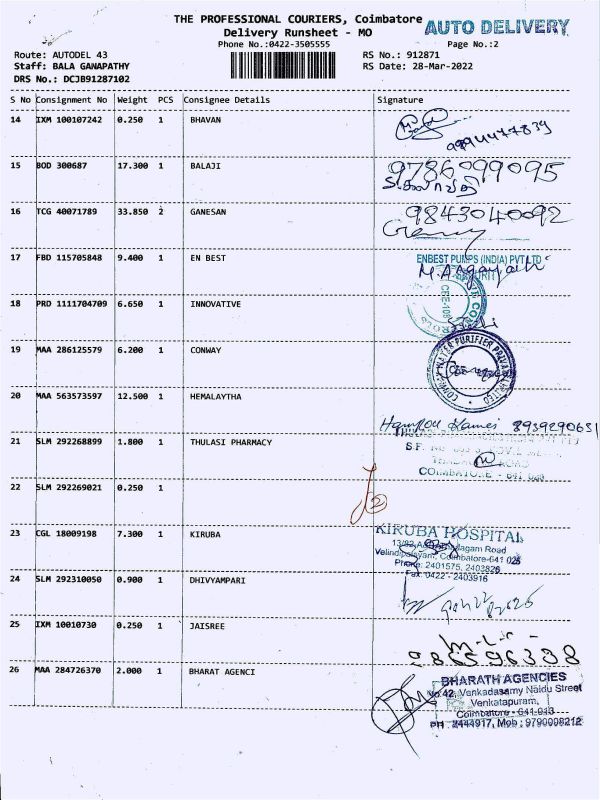 THE PROFESSIONAL COURIERS, Coimbatore
AUTO DELIVERY
Delivery Runsheet - MO
Phone No.:0422-3505555
Page No.:2
Route: AUTODEL 43
RS No.: 912871
Staff: BALA GANAPATHY
RS Date: 28-Mar-2022
DRS No.: DCJB91287102
S No Consignment No Weight PCS Consignee Details Signature
14 IXM 100107242 0.250 1 BHAVAN
15 BOD 300687 17.300 1 BALAJI
9786099095
16 TCG 40071789 33.850 2 GANESAN
9843040092
17 FBD 115705848 9.400 1 EN BEST
ENBEST PUMPS (INDIA) PVT LTD
18 PRD 1111704709 6.650 1 INNOVATIVE
19 MAA 286125579 6.200 1 CONWAY
WATER PURIFIER PRIVATE LIMITED
20 MAA 563573597 12.500 1 HEMALAYTHA
8939290651
21 SLM 292268899 1.800 1 THULASI PHARMACY
S.F.
ROAD
COIMBATORE - 641
22 SLM 292269021 0.250 1
23 CGL 18009198 7.300 1 KIRUBA
KIRUBA HOSPITAL
Road
Coimbatore-641 025
Phone: 2401575, 2403826
Fax: 0422 - 2403916
24 SLM 292310050 0.900 1 DHIVYAMPARI
25 IXM 10010730 0.250 1 JAISREE
26 MAA 284726370 2.000 1 BHARAT AGENCI
BHARATH AGENCIES
No:42, Venkadasamy Naidu Street
Venkatapuram,
Coimbatore - 641 013
PH : 2444917, Mob : 9790008212